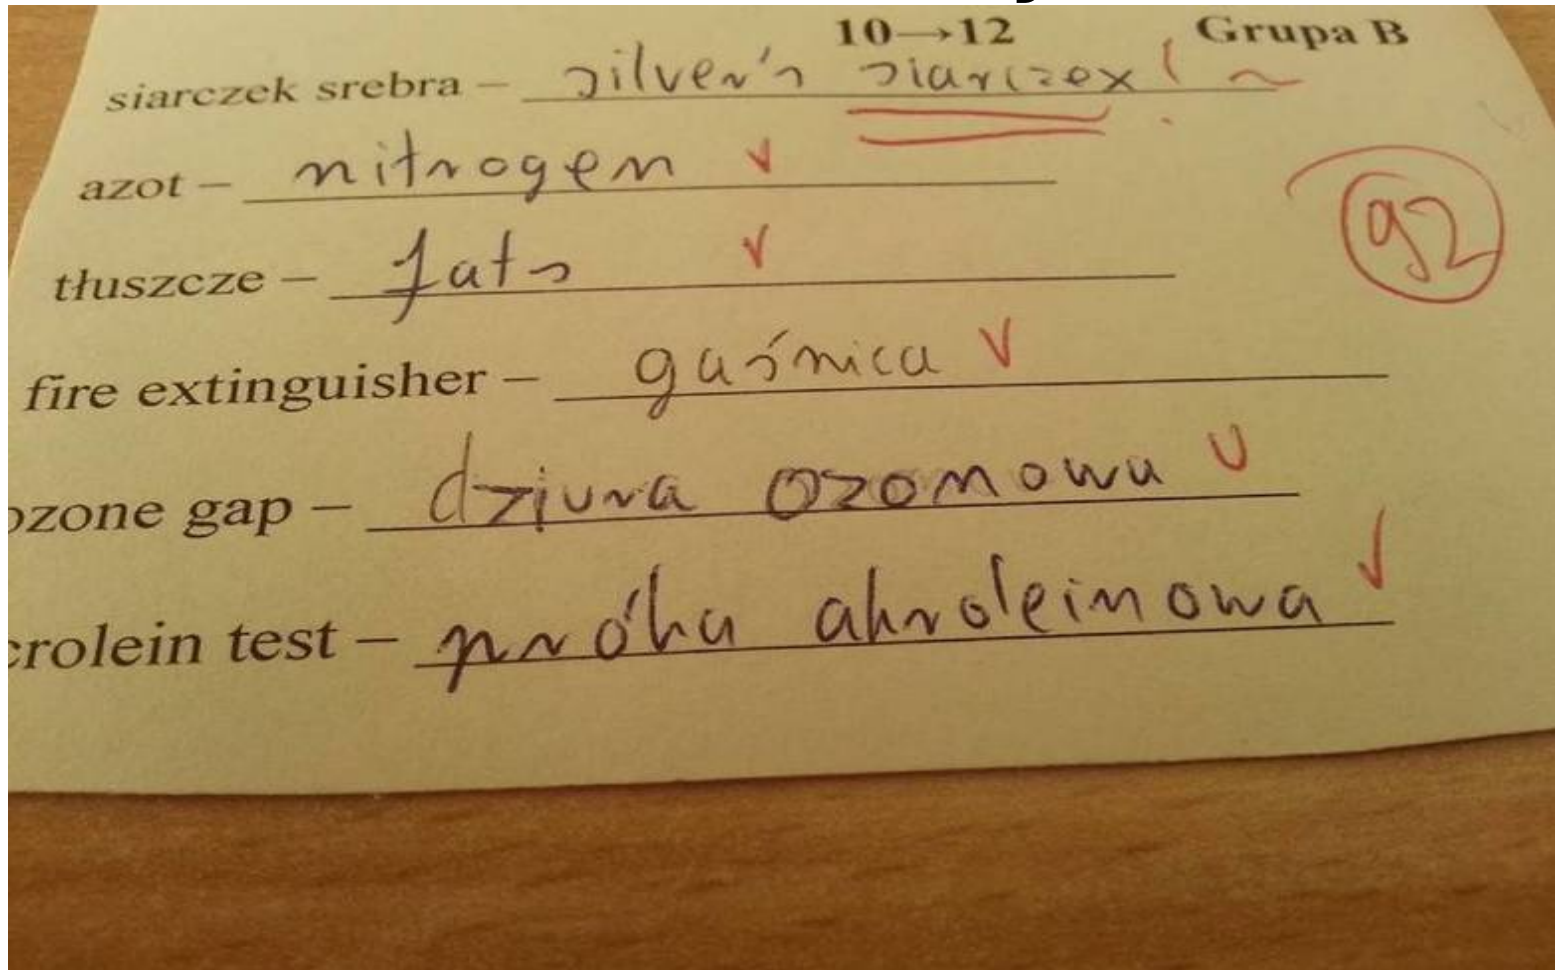 10→12 Grupa B
siarczek srebra – silver's siarczex !
azot – nitrogen
tłuszcze – fats
fire extinguisher – gaśnica
ozone gap – dziura ozonowa
crolein test – próba akroleinowa